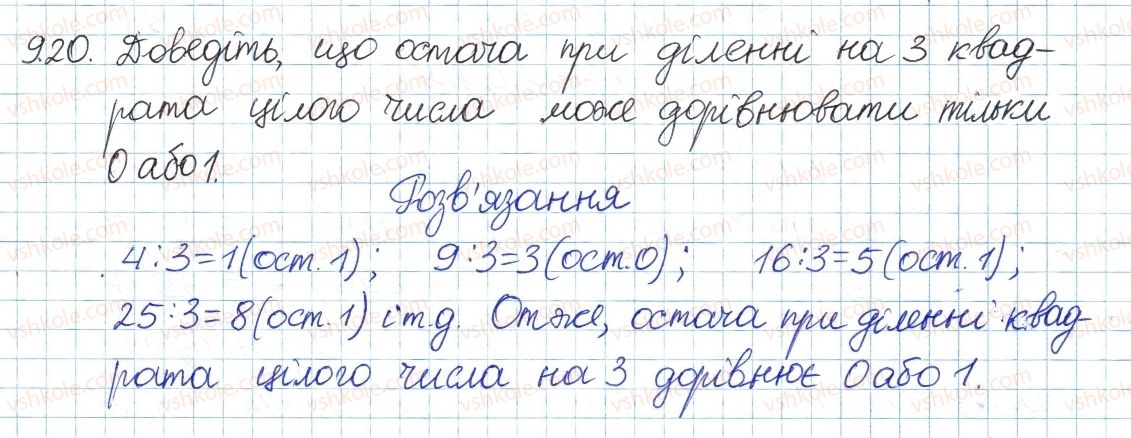 9.20. Доведіть, що остача при діленні на 3 квад-
рата цілого числа може дорівнювати тільки
0 або 1.
Розв'язання
4:3=1(ост. 1); 9:3=3(ост.0); 16:3=5(ост. 1);
25:3=8(ост.1) і т.д. Отже, остача при діленні квад-
рата цілого числа на 3 дорівнює 0 або 1.